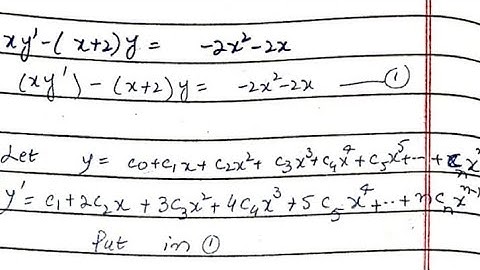 xy' - (x+2)y = -2x² - 2x
(xy') - (x+2)y = -2x² - 2x —— ①
Let y = c₀ + c₁x + c₂x² + c₃x³ + c₄x⁴ + c₅x⁵ + ... + cₙxⁿ
y' = c₁ + 2c₂x + 3c₃x² + 4c₄x³ + 5c₅x⁴ + ... + ncₙxⁿ⁻¹
Put in ①